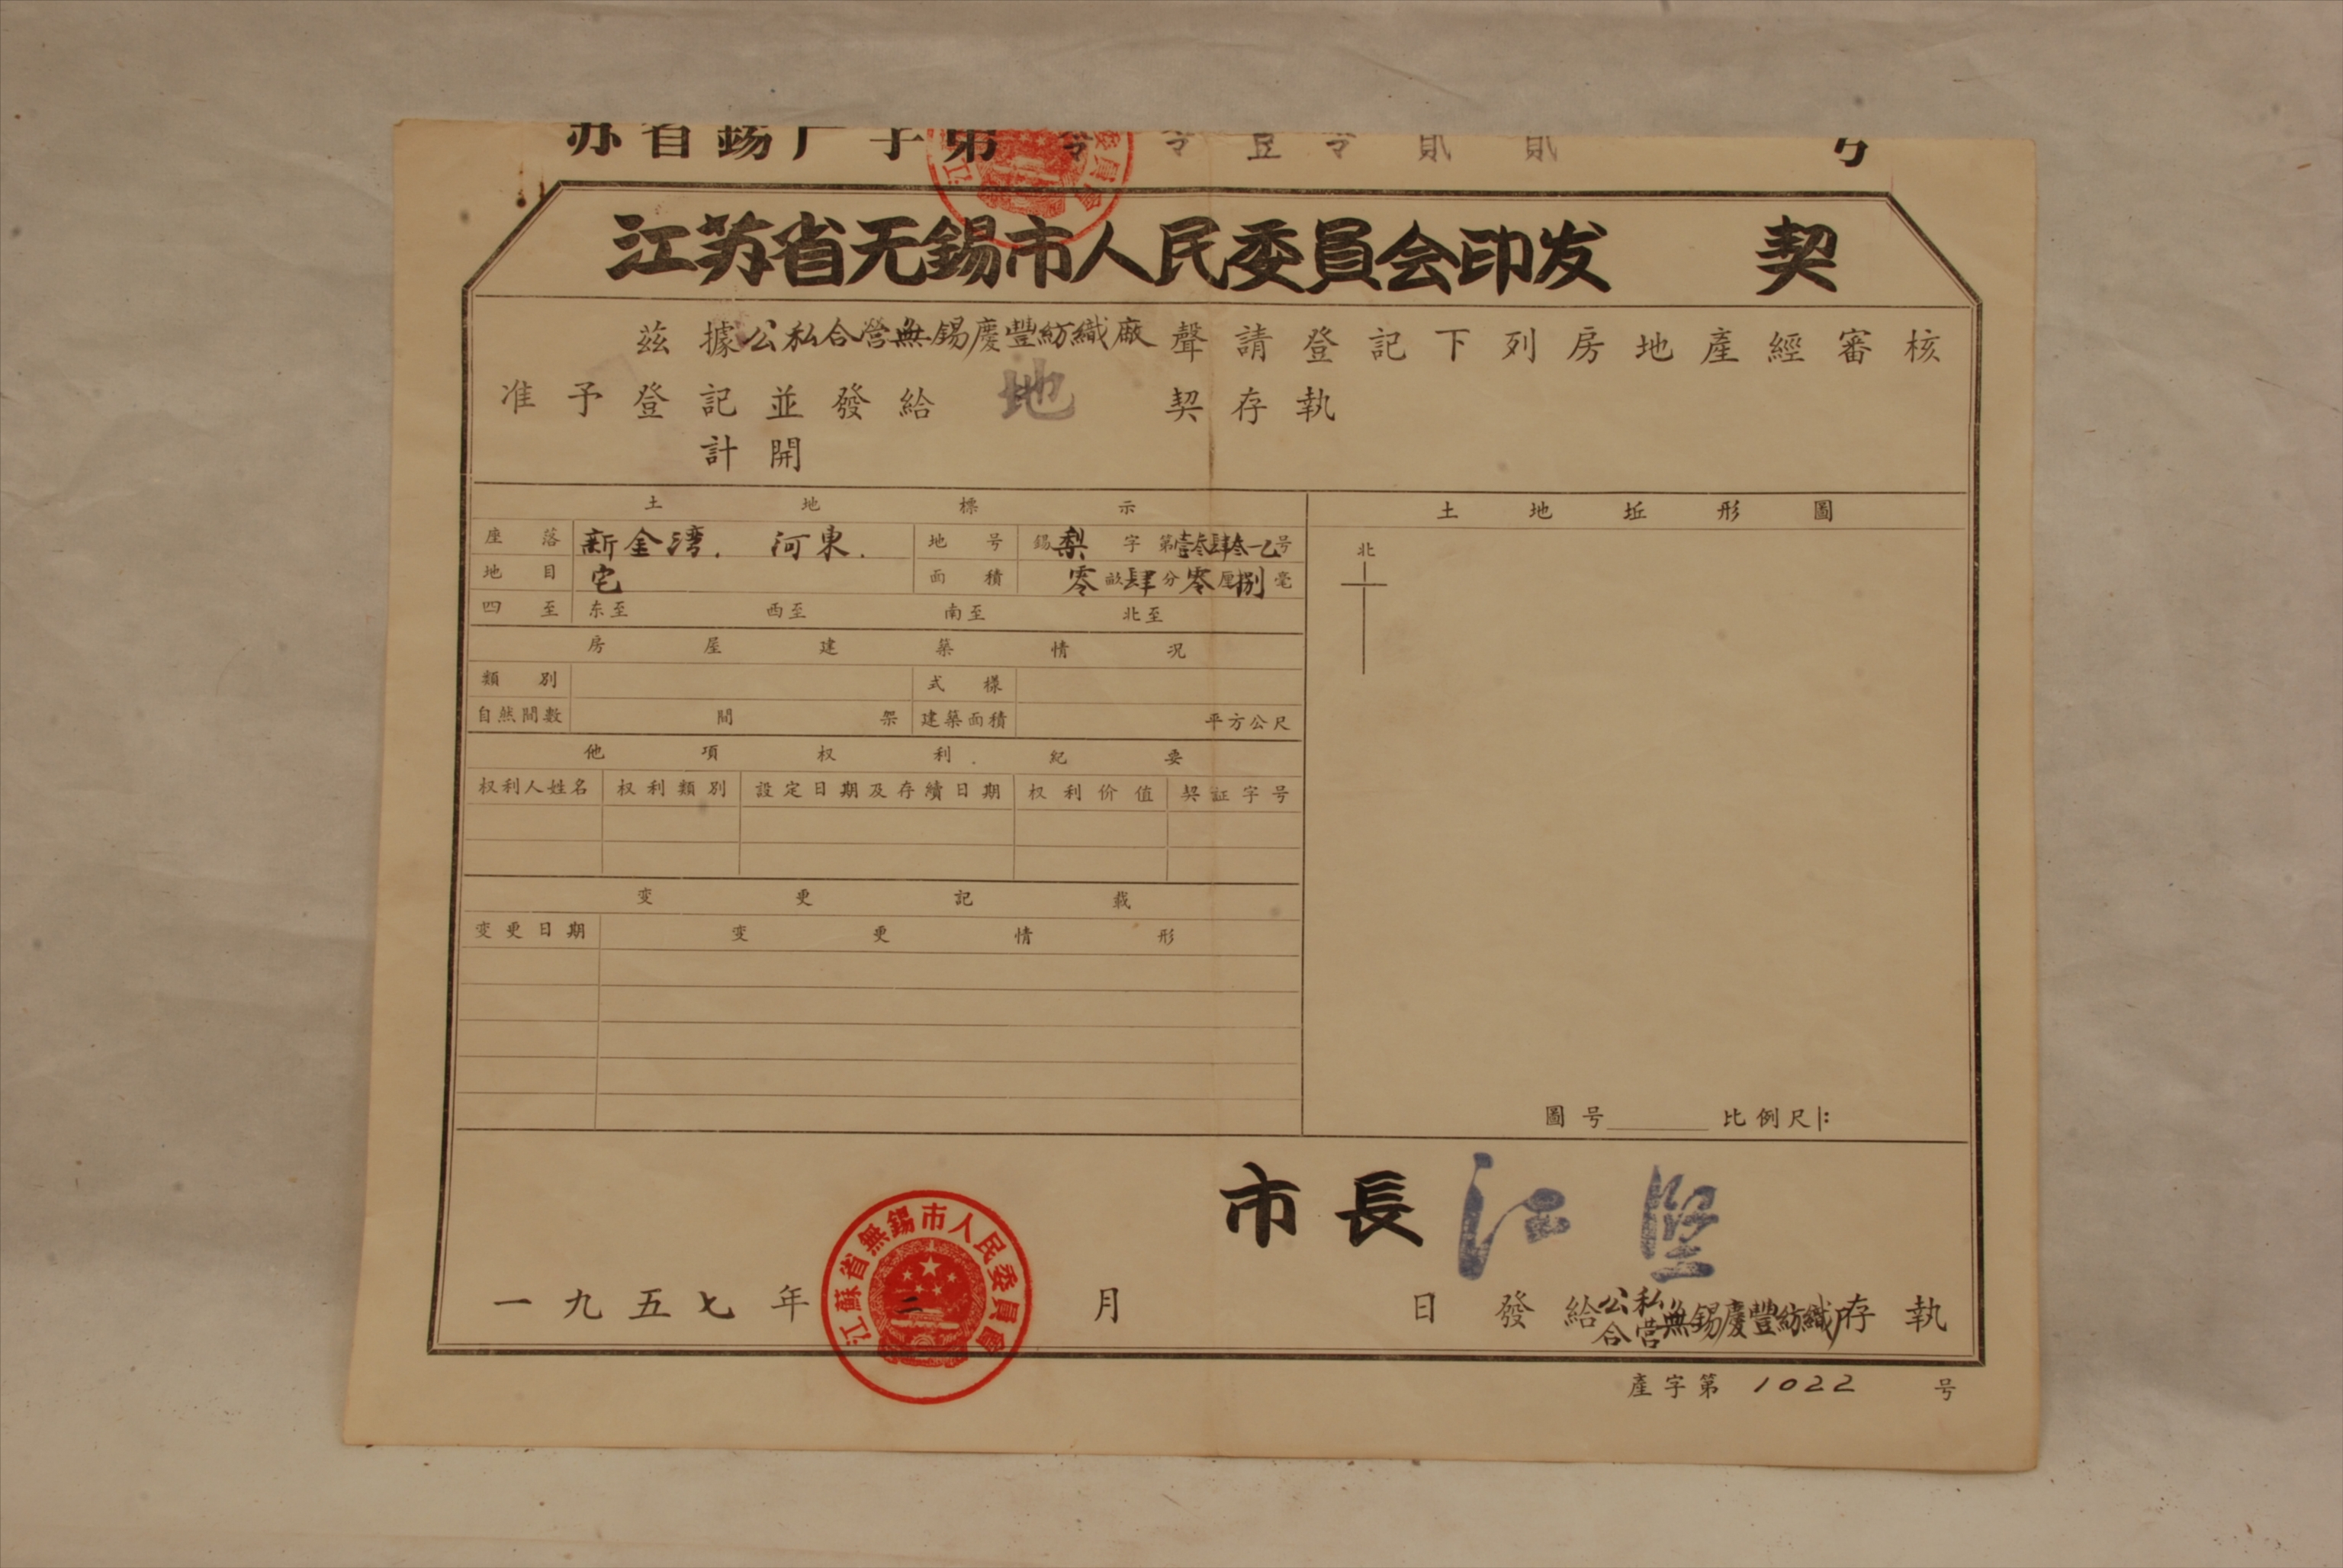 苏省錫产字第 令 令 壹 令 貳 貳 号
江苏省无錫市人民委員会印发 契
茲據公私合營無錫慶豐紡織廠聲請登記下列房地產經審核
准予登記並發給 地 契存執
計開
土地標示
座落 新金湾. 河東. 地号 錫梨字第壹叁肆叁—乙号
地目 宅 面積 零畝肆分零厘捌毫
四至 东至 西至 南至 北至
房屋建築情况
類別 式樣
自然間數 間 架 建築面積 平方公尺
他項权利纪要
权利人姓名 权利類別 設定日期及存續日期 权利价值 契証字号
变更記載
变更日期 变更情形
土地坵形圖
北
圖号 比例尺1:
市長 江堅
一九五七年二月 日發給公私合营無錫慶豐紡織厂存執
江蘇省無錫市人民委員會
產字第 1022 号